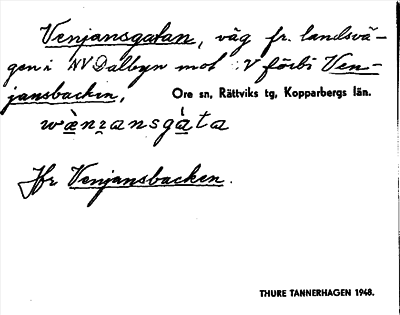 Venjansgatan, väg fr. landsvä-
gen i NV Dalbyn mot V förbi Ven-
jansbacken, Ore sn, Rättviks tg, Kopparbergs län.
Jfr Venjansbacken.
THURE TANNERHAGEN 1948.